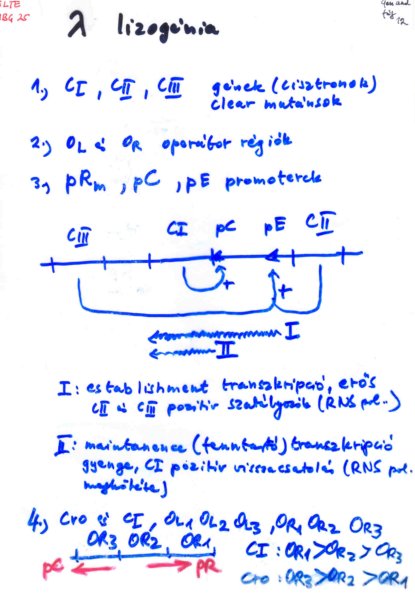 ELTE
λ lizogénia
1., CI, CII, CIII gének (cisztronok)
clear mutánsok
2., OL és OR operátor régiók
3., pRm, pC, pE promoterek
CIII CI pC pE CII
+ +
I
II
I: establishment transzkripció, erős
CII és CIII pozitív szabályozók (RNS pol.)
II: maintanence (fenntartó) transzkripció
gyenge, CI pozitív visszacsatolás (RNS pol.
megkötése)
4., Cro és CI, OL1 OL2 OL3, OR1 OR2 OR3
OR3 OR2 OR1 CI: OR1 > OR2 > OR3
pC pR Cro: OR3 > OR2 > OR1